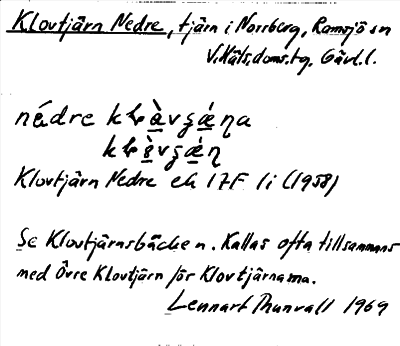 Klovtjärn Nedre, tjärn i Norrberg, Ramsjö sn
V. Häls. doms. tg. Gävl. l.
nédre
Klovtjärn Nedre ek 17F li (1958)
Se Klovtjärnsbäcken. Kallas ofta tillsammans
med Övre Klovtjärn för Klovtjärnarna.
Lennart Thunvall 1969